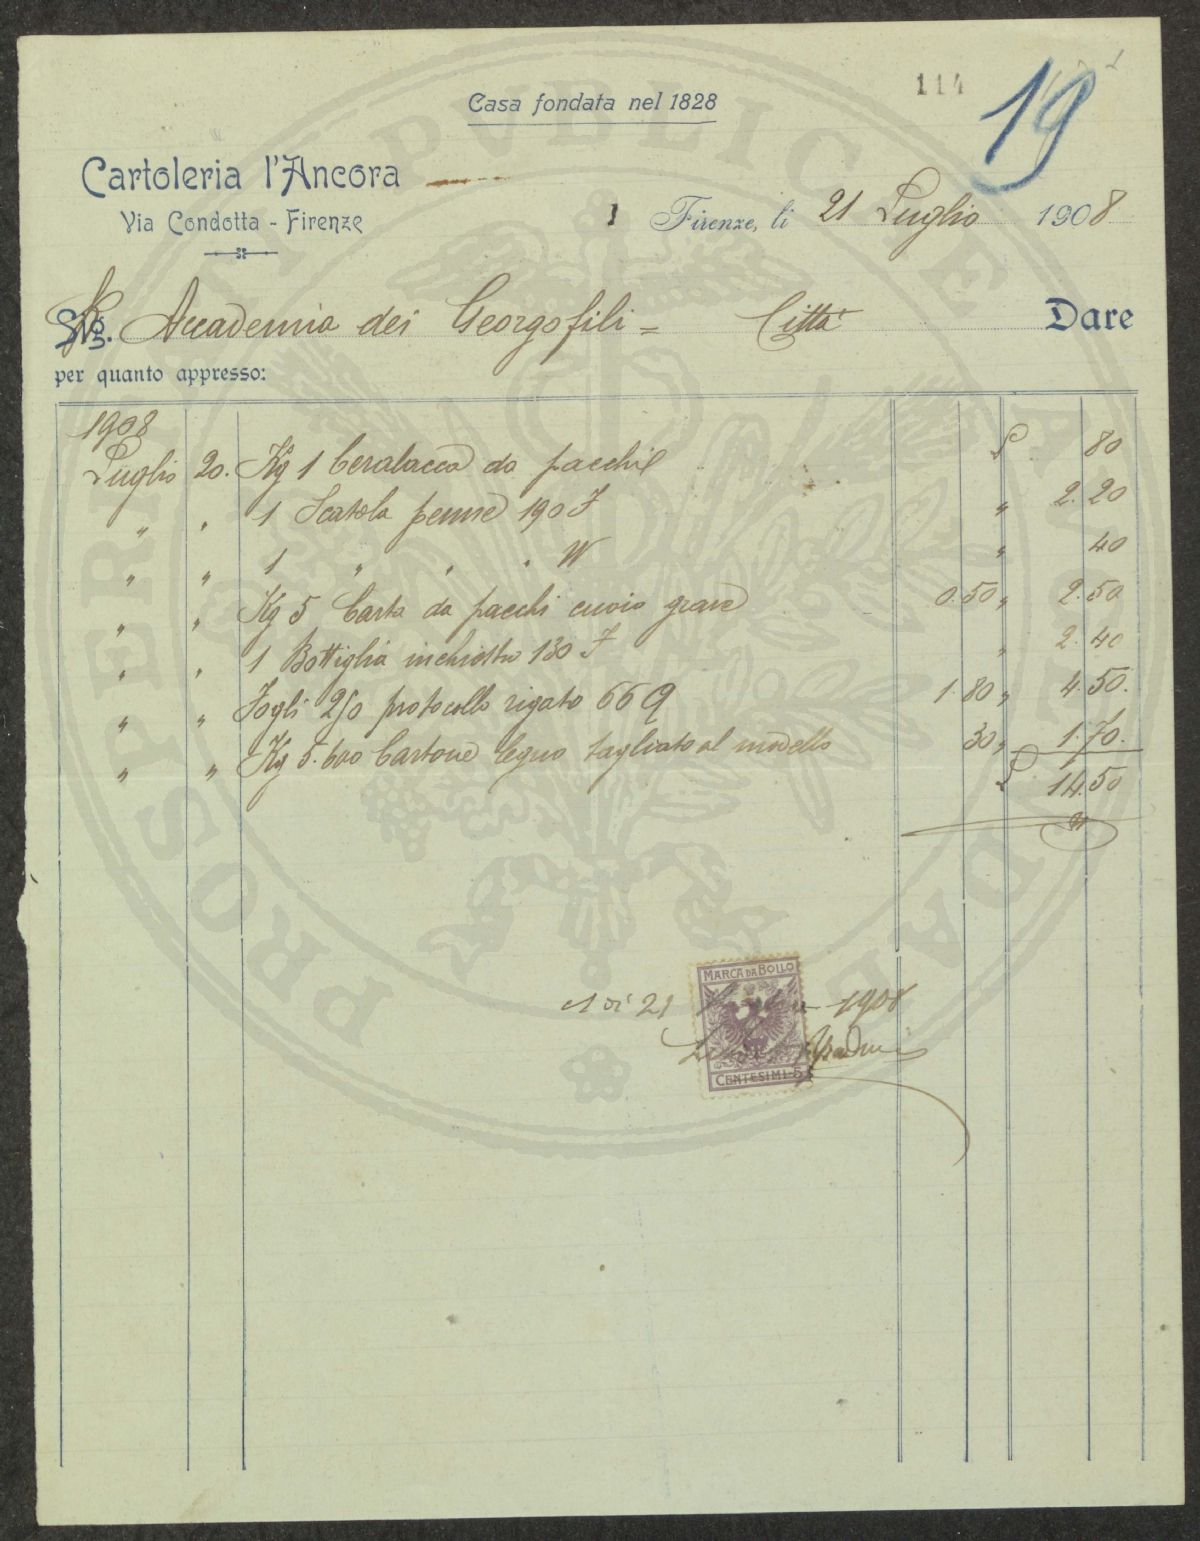 114
19
Casa fondata nel 1828
Cartoleria l'Ancora
Via Condotta - Firenze
1 Firenze, li 21 Luglio 1908
Accademia dei Georgofili = Città Dare
per quanto appresso:
1908
Luglio 20. Kg 1 Ceralacca da pacchi £ 80
" " 1 Scatola penne 190 F " 2.20
" " 1 " " " W " 40
" " Kg 5 Carta da pacchi cuoio grave 0.50 " 2.50
" " 1 Bottiglia inchiostro 130 F " 2.40
" " Fogli 250 protocollo rigato 66 Q 1.80 " 4.50.
" " Kg 5.600 Cartone legno tagliato al modello 30 " 1.70.
£ 14.50
MARCA DA BOLLO
A dì 21 1908
CENTESIMI 5
PROSPERITATI PVBLICAE AVGENDAE